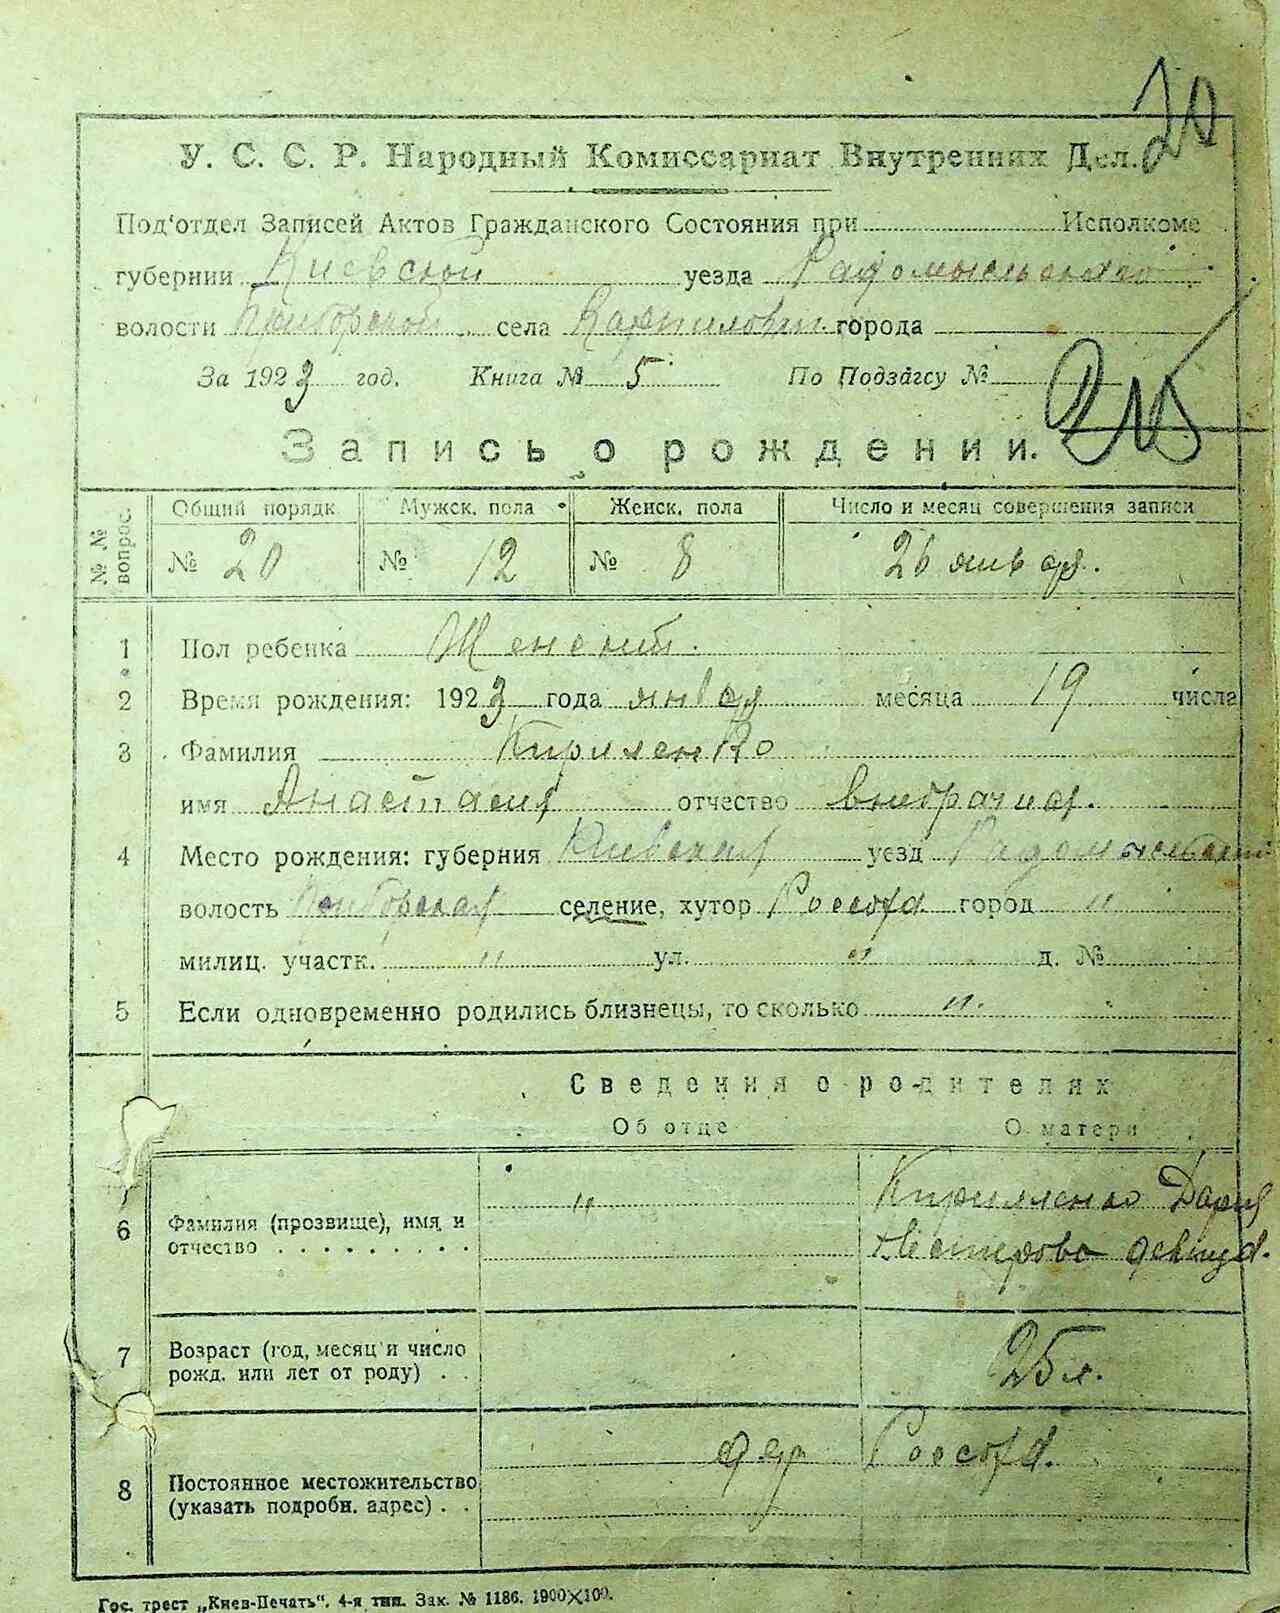 20
У. С. С. Р. Народный Комиссариат Внутренних Дел.
Под'отдел Записей Актов Гражданского Состояния при Исполкоме
губернии Киевской уезда Радомысльского
волости села города
За 1923 год. Книга № 5 По Подзагсу №
Запись о рождении.
№ № вопрос. Общий порядк Мужск. пола Женск. пола Число и месяц совершения записи
№ 20 № 12 № 8 26 января.
1 Пол ребенка Женский.
2 Время рождения: 1923 года января месяца 19 числа
3 Фамилия Кириленко
имя Анастасия отчество внебрачная.
4 Место рождения: губерния Киевская уезд Радомысльский
волость селение, хутор Россоха город "
милиц. участк. " ул. " д. №
5 Если одновременно родились близнецы, то сколько "
Сведения о родителях
Об отце О матери
6 Фамилия (прозвище), имя и " Кириленко Дария
отчество . . . . . . . . . . Нестерова девица.
7 Возраст (год, месяц и число 25 л.
рожд. или лет от роду) . .
дер Россоха.
8 Постоянное местожительство
(указать подробн. адрес) . .
Гос. трест „Киев-Печать". 4-я тип. Зак. № 1186. 1900×100.